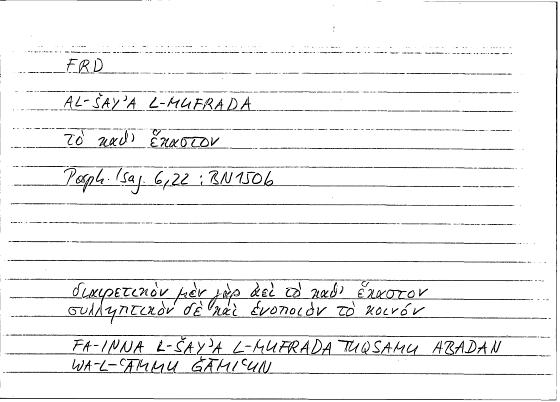 FRD
AL-ŠAYʾA L-MUFRADA
τὸ καθ' ἕκαστον
Porph. Isag. 6,22 : BN150b
διαιρετικὸν μὲν γὰρ ἀεὶ τὸ καθ' ἕκαστον
συλληπτικὸν δὲ καὶ ἑνοποιὸν τὸ κοινόν
FA-INNA L-ŠAYʾA L-MUFRADA YUQSAMU ABADAN
WA-L-ʿĀMMU ǦĀMIʿUN